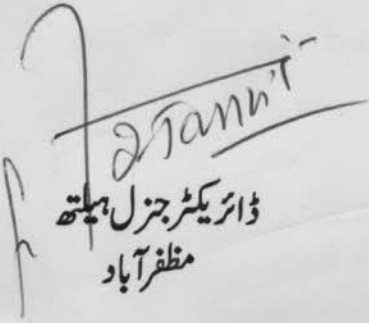 ڈائریکٹر جنرل ہیلتھ
مظفرآباد